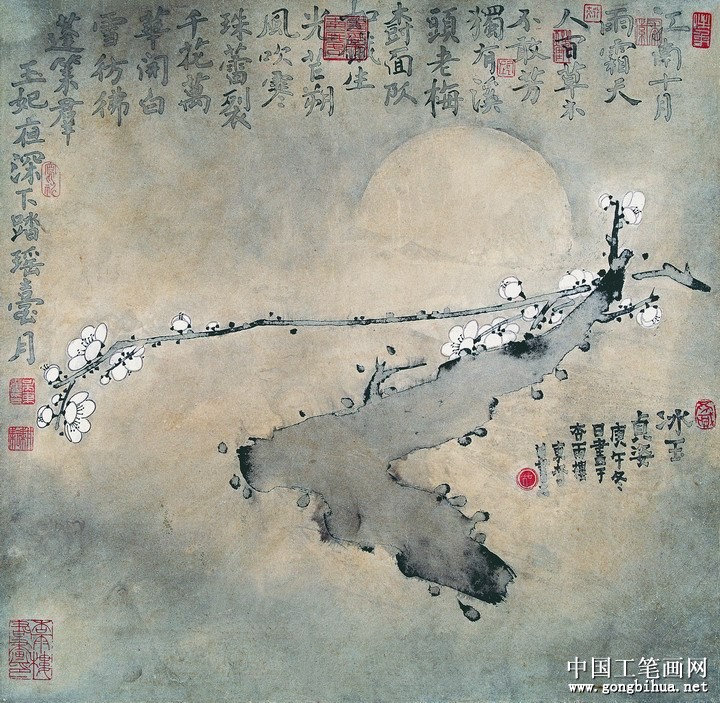 江南十月
雨霜天
人草木
不敢芳
獨有溪
頭老梅
樹面
如鐵生
光芒朔
風吹寒
珠蕾裂
千花萬
華開白
雪彷彿
蓬萊羣
玉妃夜深下踏瑤臺月
冰玉
貞姿
庚午冬
日畫于
杏雨樓
中国工笔画网
www.gongbihua.net